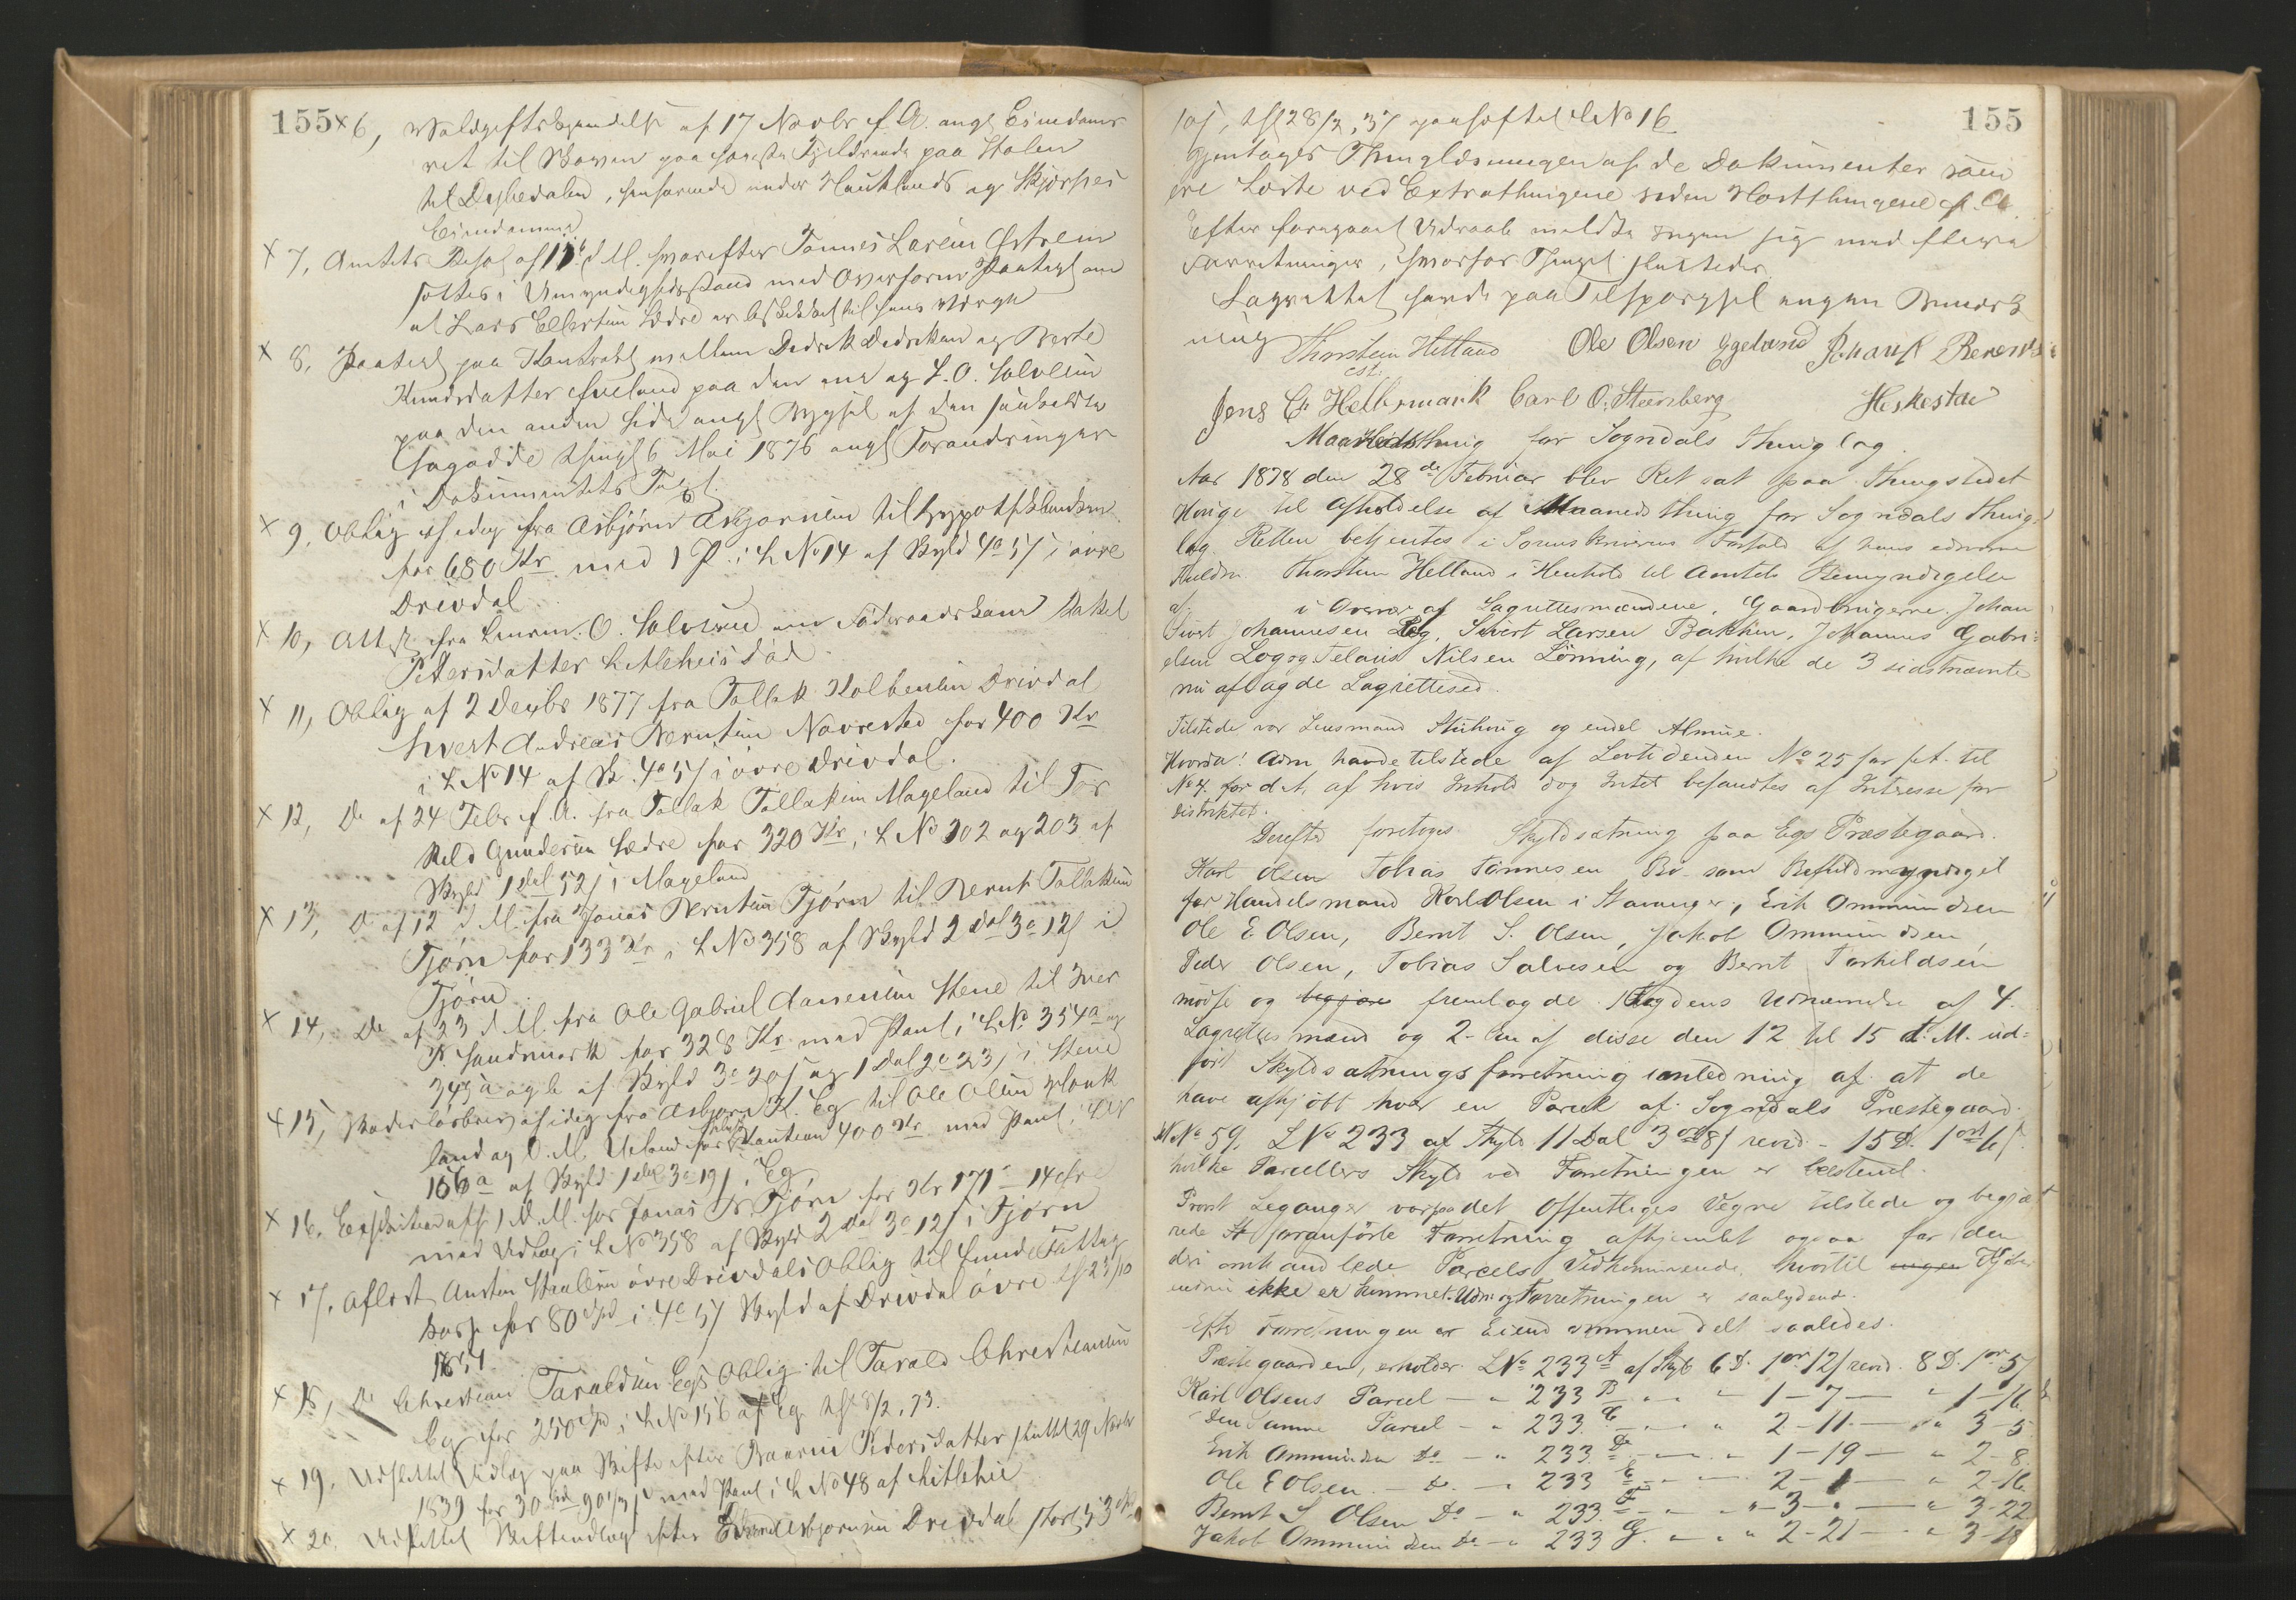 155 x 6, Voldgiftskjendelse af 17 Novbr f. A. angl Eiendoms
ret til Skoven paa Fjeldrunde paa Stolen
til Dybedalen, henhørende under Hauklands og Skjerpes
Eiendomme
x 7, Amtets Resol af 15 d M. hvorefter Tønnes Larsen Østrem
sættes i Umyndighedsstand med Overform Paategn om
at Lars Ellertsen Lædre er beskikket til hans Værge
x 8, Paategn paa Kontrakt mellem Didrik Didriksen og Berte
Knudsdatter Aueland paa den ene og L. O. Salvesen
paa den anden Side angl Bygsel af den saakaldte
thingl 6 Mai 1876 angl Forandringer
i Dokumentets
x 9, Oblig af idag fra Asbjørn Asbjørnsen til Hypothekbanken
for 680 Kr med 1 P. i L No 14 af Skyld 4o 5/ i øvre
Drivdal
x 10, Attest fra Lensm. O. Salvesen om Føderaadskone Rakel
Petersdatter Litleheis død
x 11, Oblig af 2 Decbr 1877 fra Tollak Kolbensen Drivdal
Andreas Berntsen Naavrestad for 400 Kr
i L No 14 af Sk. 4o 5/ i øvre Drivdal.
x 12, Do af 24 Febr f. A. fra Tollak Tollaksen Mageland til Tor
kild Gundersen Lædre for 320 Kr i L No 202 og 203 af
Skyld 1 dal 52/ i Mageland
x 13, Do af 12 d M. fra Jonas Berntsen Tjørn til Bernt Tollaksen
Tjørn for 133 Kr i L No 358 af Skyld 2 dal 3o 12/ i
Tjørn
x 14, Do af 23 d M. fra Ole Gabriel Aanensen Stene til Iver
P. Sandmark for 328 Kr med Pant i L No 354a og
345a og b af Skyld 3o 20/ og 1 Dal 2o 23/ i Stene
x 15, Skadesløsbrev af idag fra Asbjørn K. Eg til Ole Olsen
land og O. M. Ueland for Kaution 400 Kr med Pant i L No
156a af Skyld 1 dal 3o 19/ i Eg
x 16, Exekution af 1 d. M. hos Jonas Br. Tjørn for Kr 171 - 14 øre
med Udlæg i L No 358 af Skyld 2 Dal 3o 12/ i Tjørn
x 17, Aflæst Austen Staalesen øvre Drivdals Oblig til Lunde Fattig
kasse for 80 Spd i 4o 5/ Skyld af Drivdal øvre th 23/10
1851.
x 18, Do Christian Taraldsen Egs Oblig til Tarald Christiansen
Eg for 250 Spd i L No 156 af Eg thl 28/2, 73.
x 19, Udslettet Udlæg paa Skifte efter Baarni Pedersdatter sluttet 29 Novbr
1839 for 30 Spd 90 1/2/ med Pant i L No 48 af Litlehei
x 20, Udslettet Skifteudlæg efter Asbjørnsen Drivdal stort 53 Spd
155
10/, thl 28/2, 37 paaheftet L No 16
Gjentages Thinglæsningen af de Dokumenter som
ere læste ved Extrathingene siden Høstthingene f. A.
Efter foregaaet Udraab meldte ingen sig med flere
Forretninger, hvorfor Thinget sluttedes
Lagrettet havde paa Tilspørgsel ingen Bemærk
ning Thorstein Helland Ole Olsen Egeland
cst.
Jens C. Hellesmark Carl O. Steensberg Heskestad
Maanedsthing for Sogndals Thinglag.
Aar 1878 den 28de Februar blev Ret sat paa Thingstedet
Hauge til Afholdelse af Maanedsthing for Sogndals Thing-
lag. Retten betjentes i Sorenskriverens Forfald af hans edsvorne
Fuldm. Thorstein Helland i Henhold til Amtets Bemyndigelse
af i Overvær af Lagrettesmændene, Gaardbrugerne Johan
Sivert Johannesen Log, Sivert Larsen Bakken, Johannes Gabri-
elsen Log og Telaus Nilsen Lönning, af hvilke de 3 sidstnævnte
nu aflagde Lagretteseed.
Tilstede var Lensmand Stuhaug og endel Almue.
Adm havde tilstede af Lovtidenden No 25 for f. A. til
No 4 for d. A. af hvis Indhold dog Intet befandtes af Interesse for
Distriktet.
Derefter foretoges Skyldsætning paa Egs Præstegaard.
Karl Olsen Tobias Tönnesen Bö som Befuldmægtiget
for Handelsmand Karl Olsen i Stavanger, Erik Ommundsen
Ole E. Olsen, Bernt S. Olsen, Jakob Ommundsen,
Peder Olsen, Tobias Salvesen og Bernt Torkildsen
mødte og begjær fremlagde Fogdens Udnævnelse af 4
Lagrettesmænd og 2-en af disse den 12 til 15 d. M. ud-
fört Skyldsætningsforretning i anledning af at de
have afkjöbt hver en Parcel af Sogndals Præstegaard
M No 59. L No 233 af Skyld 11 Dal 3 ort 8/ revid - 15 D. 1 ort 6/
hvilke Parcellers Skyld ved Forretningen er bestemt.
Provst Leganger var paa det Offentliges Vegne tilstede og begjæ
rede foranförte Forretning afhjemlet ogsaa for den
deri omhandlede Parcels Vedkommende, hvortil ingen Kjöber
endnu ikke er kommet. Udn. og Forretningen er saalydende.
Efter Forretningen er Eiendommen delt saaledes.
Præstegaarden, erholder L No 233 A af Skyld 6 D. 1 or 12/ revid. 8 D. 1 or 5/
Karl Olsens Parcel - " 233 B - " - " 1-7 - " 1-16
Den Samme Parcel - " 233 C - " - " 2-11 - " 3-5
Erik Ommundsen Do - " 233 D - " - " 1-19 - " 2-8
Ole E Olsen - Do - " 233 E - " - " 2-1 - " 2-16
Bernt S Olsen Do - " 233 F - " - " 3 - " - " 3-22
Jakob Ommundsen Do - " 233 G - " - " 2-21 - " 3-18